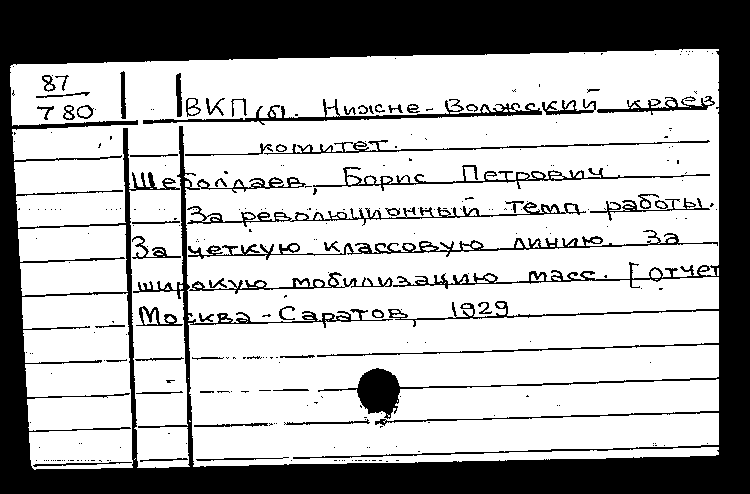 87
780
ВКП(б). Нижне-Волжский краев.
комитет.
Шеболдаев, Борис Петрович
За революционный темп работы.
За четкую классовую линию. За
широкую мобилизацию масс. [отчет
Москва-Саратов, 1929